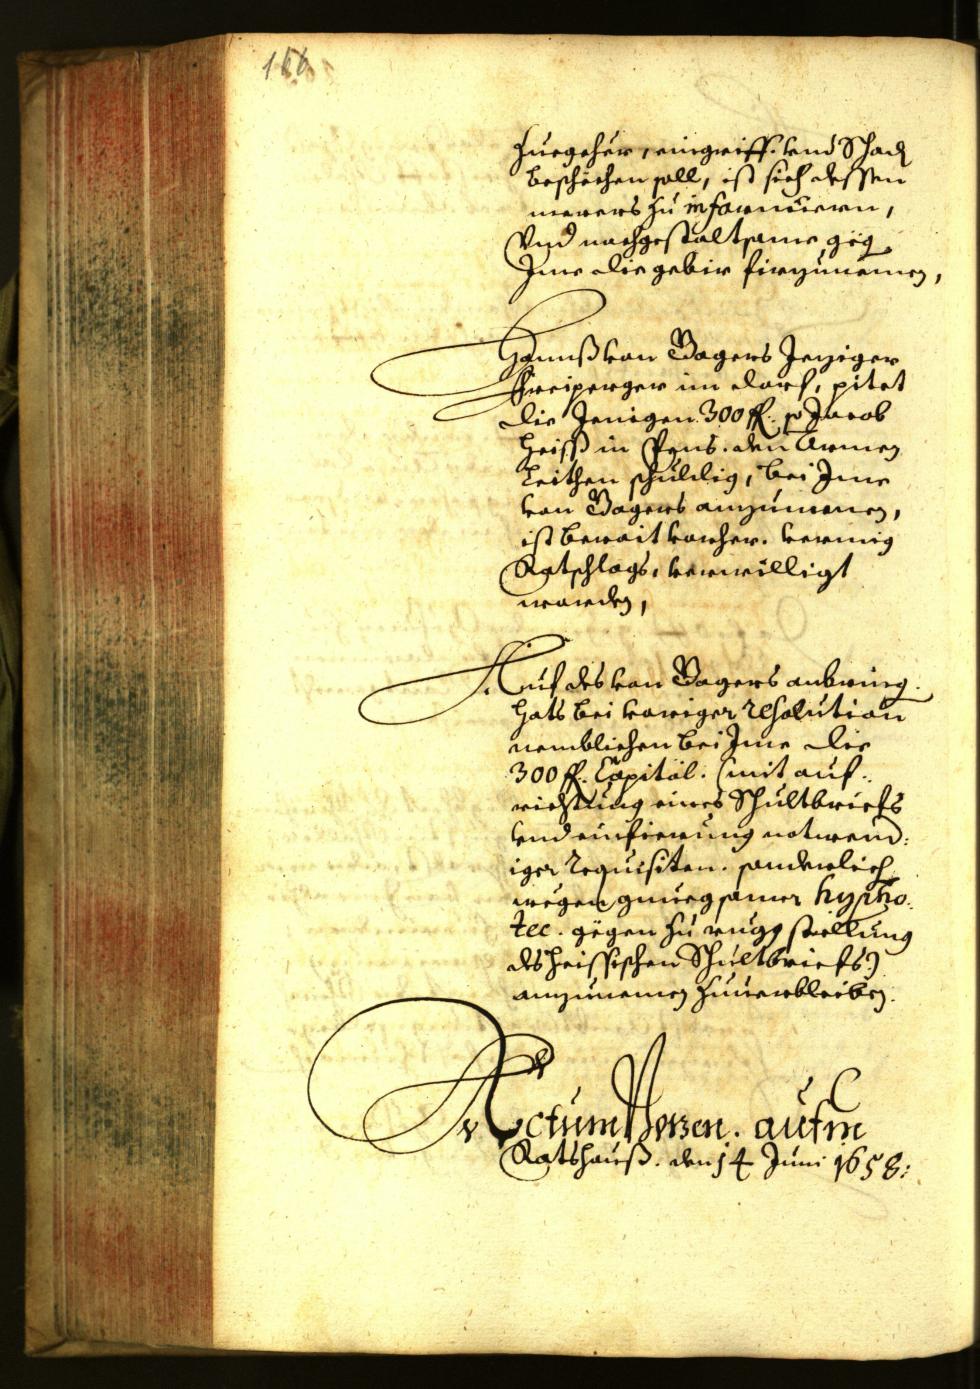 166
Zuegehör, eingriff. vnd Schad
beschehen soll, ist sich dessen
merers zu informiern,
Vnd nachgestaltsame, geg.
Ime die gebir firzunemen,
Hannß von Vagers Jeziger
Freiperger im dorf, pitet
die Jenigen 300 fl. so Jacob
Heiss in den Armen
Leithen schuldig, bei Ime
von Vagers anzunemen,
ist berait vorher. vermig
Ratschlags, verwilligt
worden,
Auf des von Vagers anbring.
hats bei voriger resolution
nemblichen bei Ime die
300 fl. Capital. (mit auf-
richtung eines Schultbriefs
vnd einfierung notwend:
iger requisiten. sonderlich
wegen gnuegsamer hypho:
tec. gegen zu rugg stellung
des heissischen Schultbriefs)
anzunemen zuuerbleiben.
Actum Merzen. aufm
Ratshauß. den 14 Juni 1658: